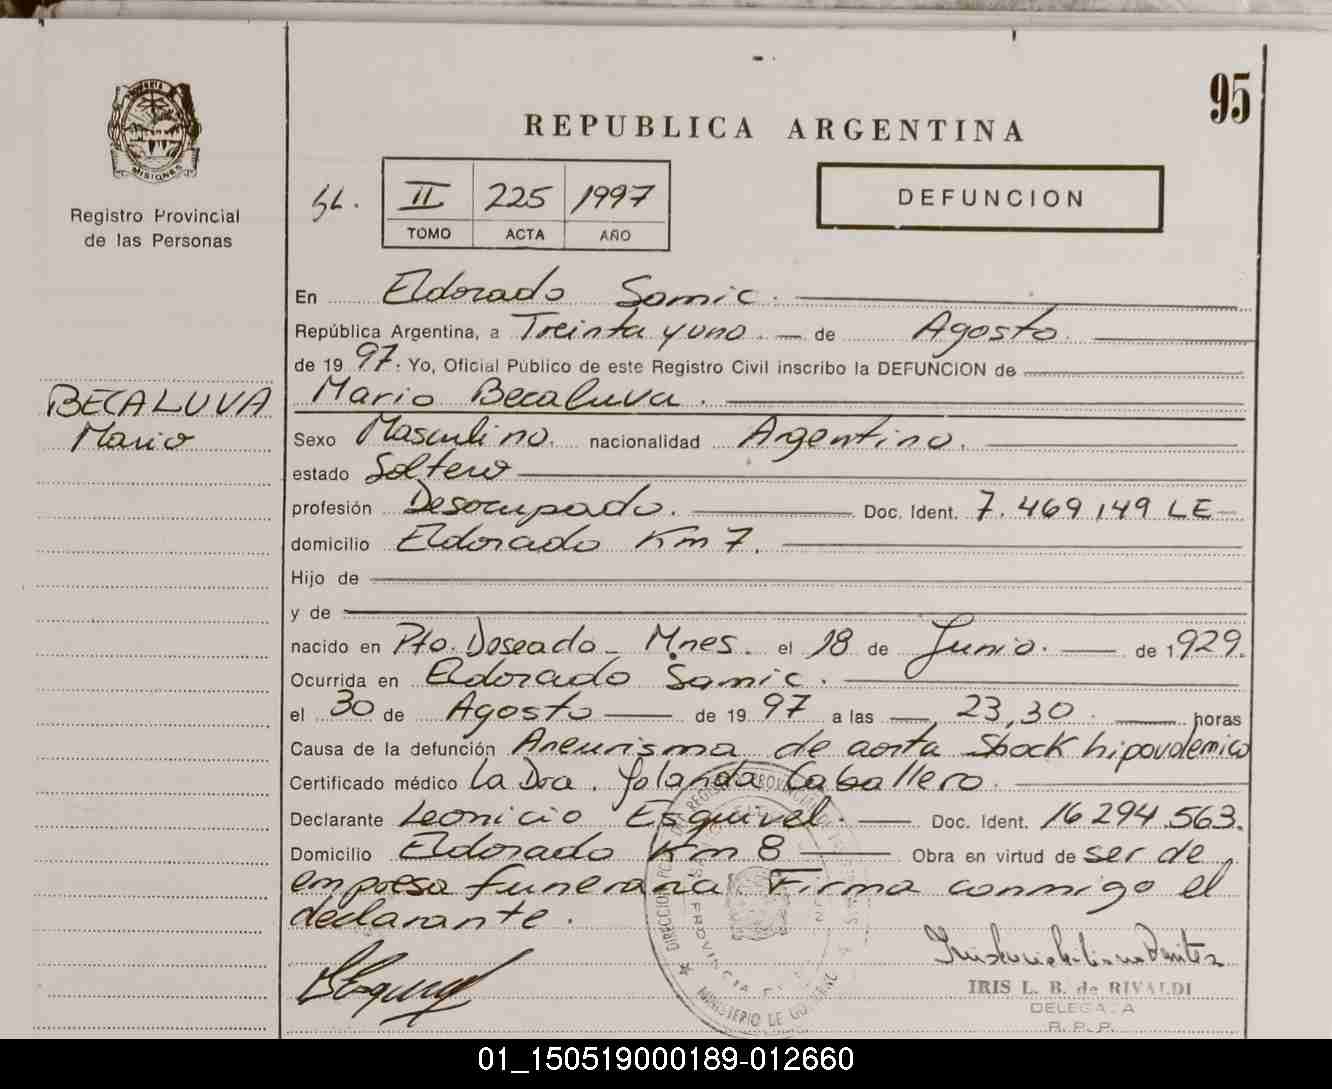 95
REPUBLICA ARGENTINA
MISIONES
Registro Provincial
de las Personas
II 225 1997
TOMO ACTA AÑO
DEFUNCION
BECALUVA
Mario
En Eldorado Samic.
República Argentina, a Treinta y uno. de Agosto.
de 19 97. Yo, Oficial Público de este Registro Civil inscribo la DEFUNCION de
Mario Becaluva.
Sexo Masculino. nacionalidad Argentino.
estado Soltero
profesión Desocupado. Doc. Ident. 7.469149 LE
domicilio Eldorado Km 7.
Hijo de
y de
nacido en Pto. Deseado - Mnes. el 18 de Junio. de 1929.
Ocurrida en Eldorado Samic.
el 30 de Agosto de 19 97 a las 23,30 horas
Causa de la defunción Aneurisma de aorta Shock hipovolemico
Certificado médico La Dra. Yolanda Caballero.
Declarante Leonicio Esquivel. Doc. Ident. 16294.563.
Domicilio Eldorado Km 8 Obra en virtud de ser de
empresa funeraria Firma conmigo el
declarante.
IRIS L. B. de RIVALDI
DELEGADA
R.P.P.
01_150519000189-012660